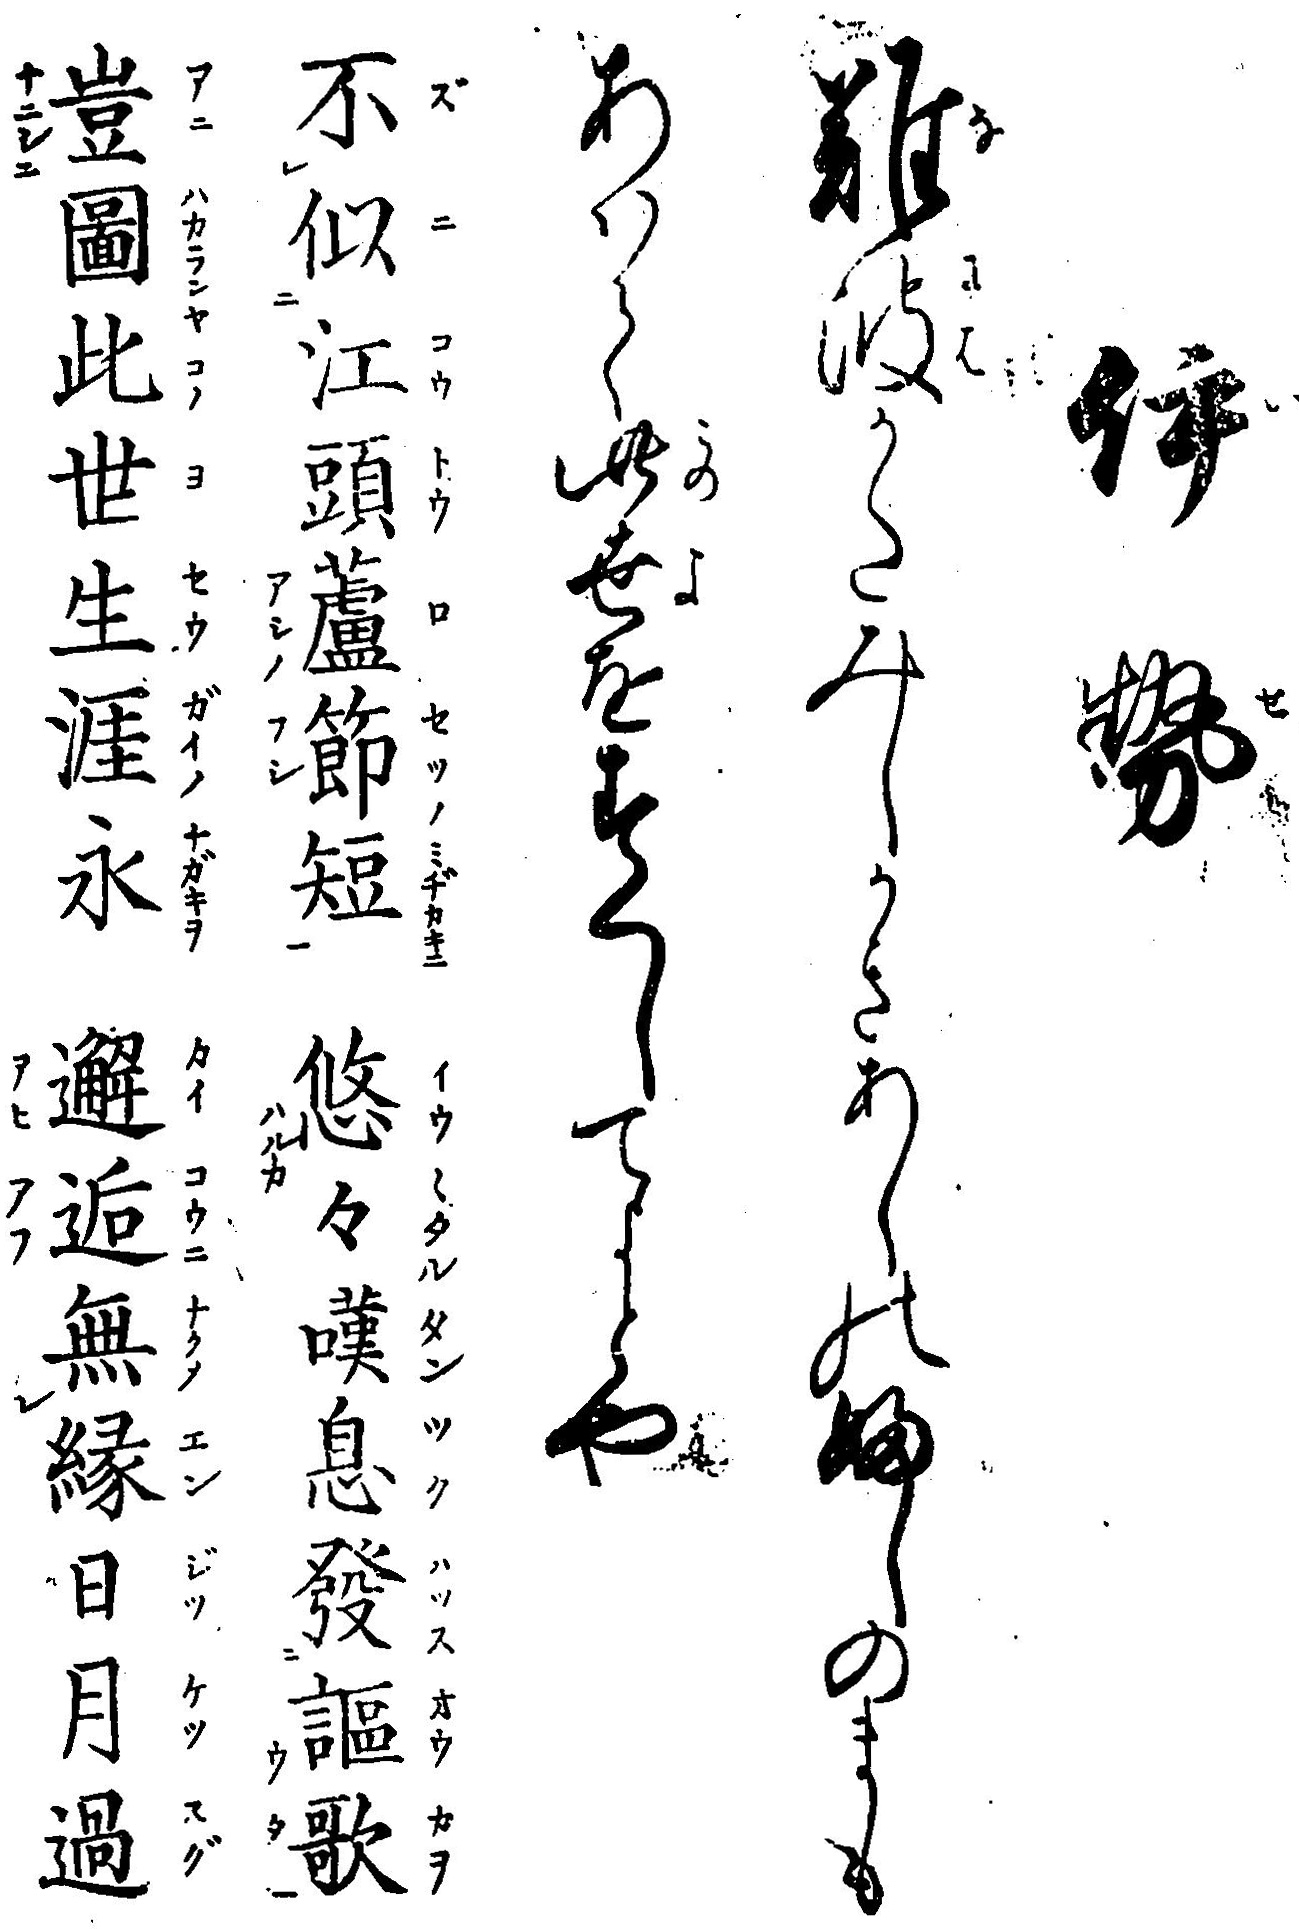 伊勢
難波かたみしかきあしの婦しのまも
あハて此世を春くしてよとや
不似江頭蘆節短 悠々嘆息發謳歌
豈圖此世生涯永 邂逅無縁日月過